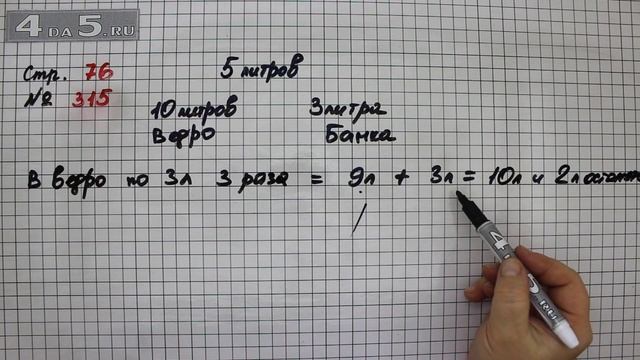 4DA5.RU
Стр. 76
№ 315
5 литров
10 литров 3 литра
Ведро Банка
В ведро по 3л 3 раза = 9л + 3л = 10л и 2л
4DA5.RU